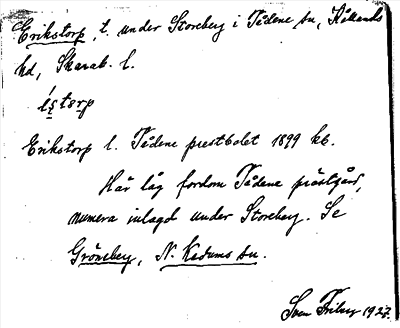 Erikstorp, t. under Storeberg i Tådene sn, Kållands
hd, Skarab. l.
éstorp
Erikstorp l. Tådene prestbolet 1899 kb.
Här låg fordom Tådene prästgård,
numera inlagd under Storeberg. Se
Gröneberg, N. Kedums sn.
Sven 1927.